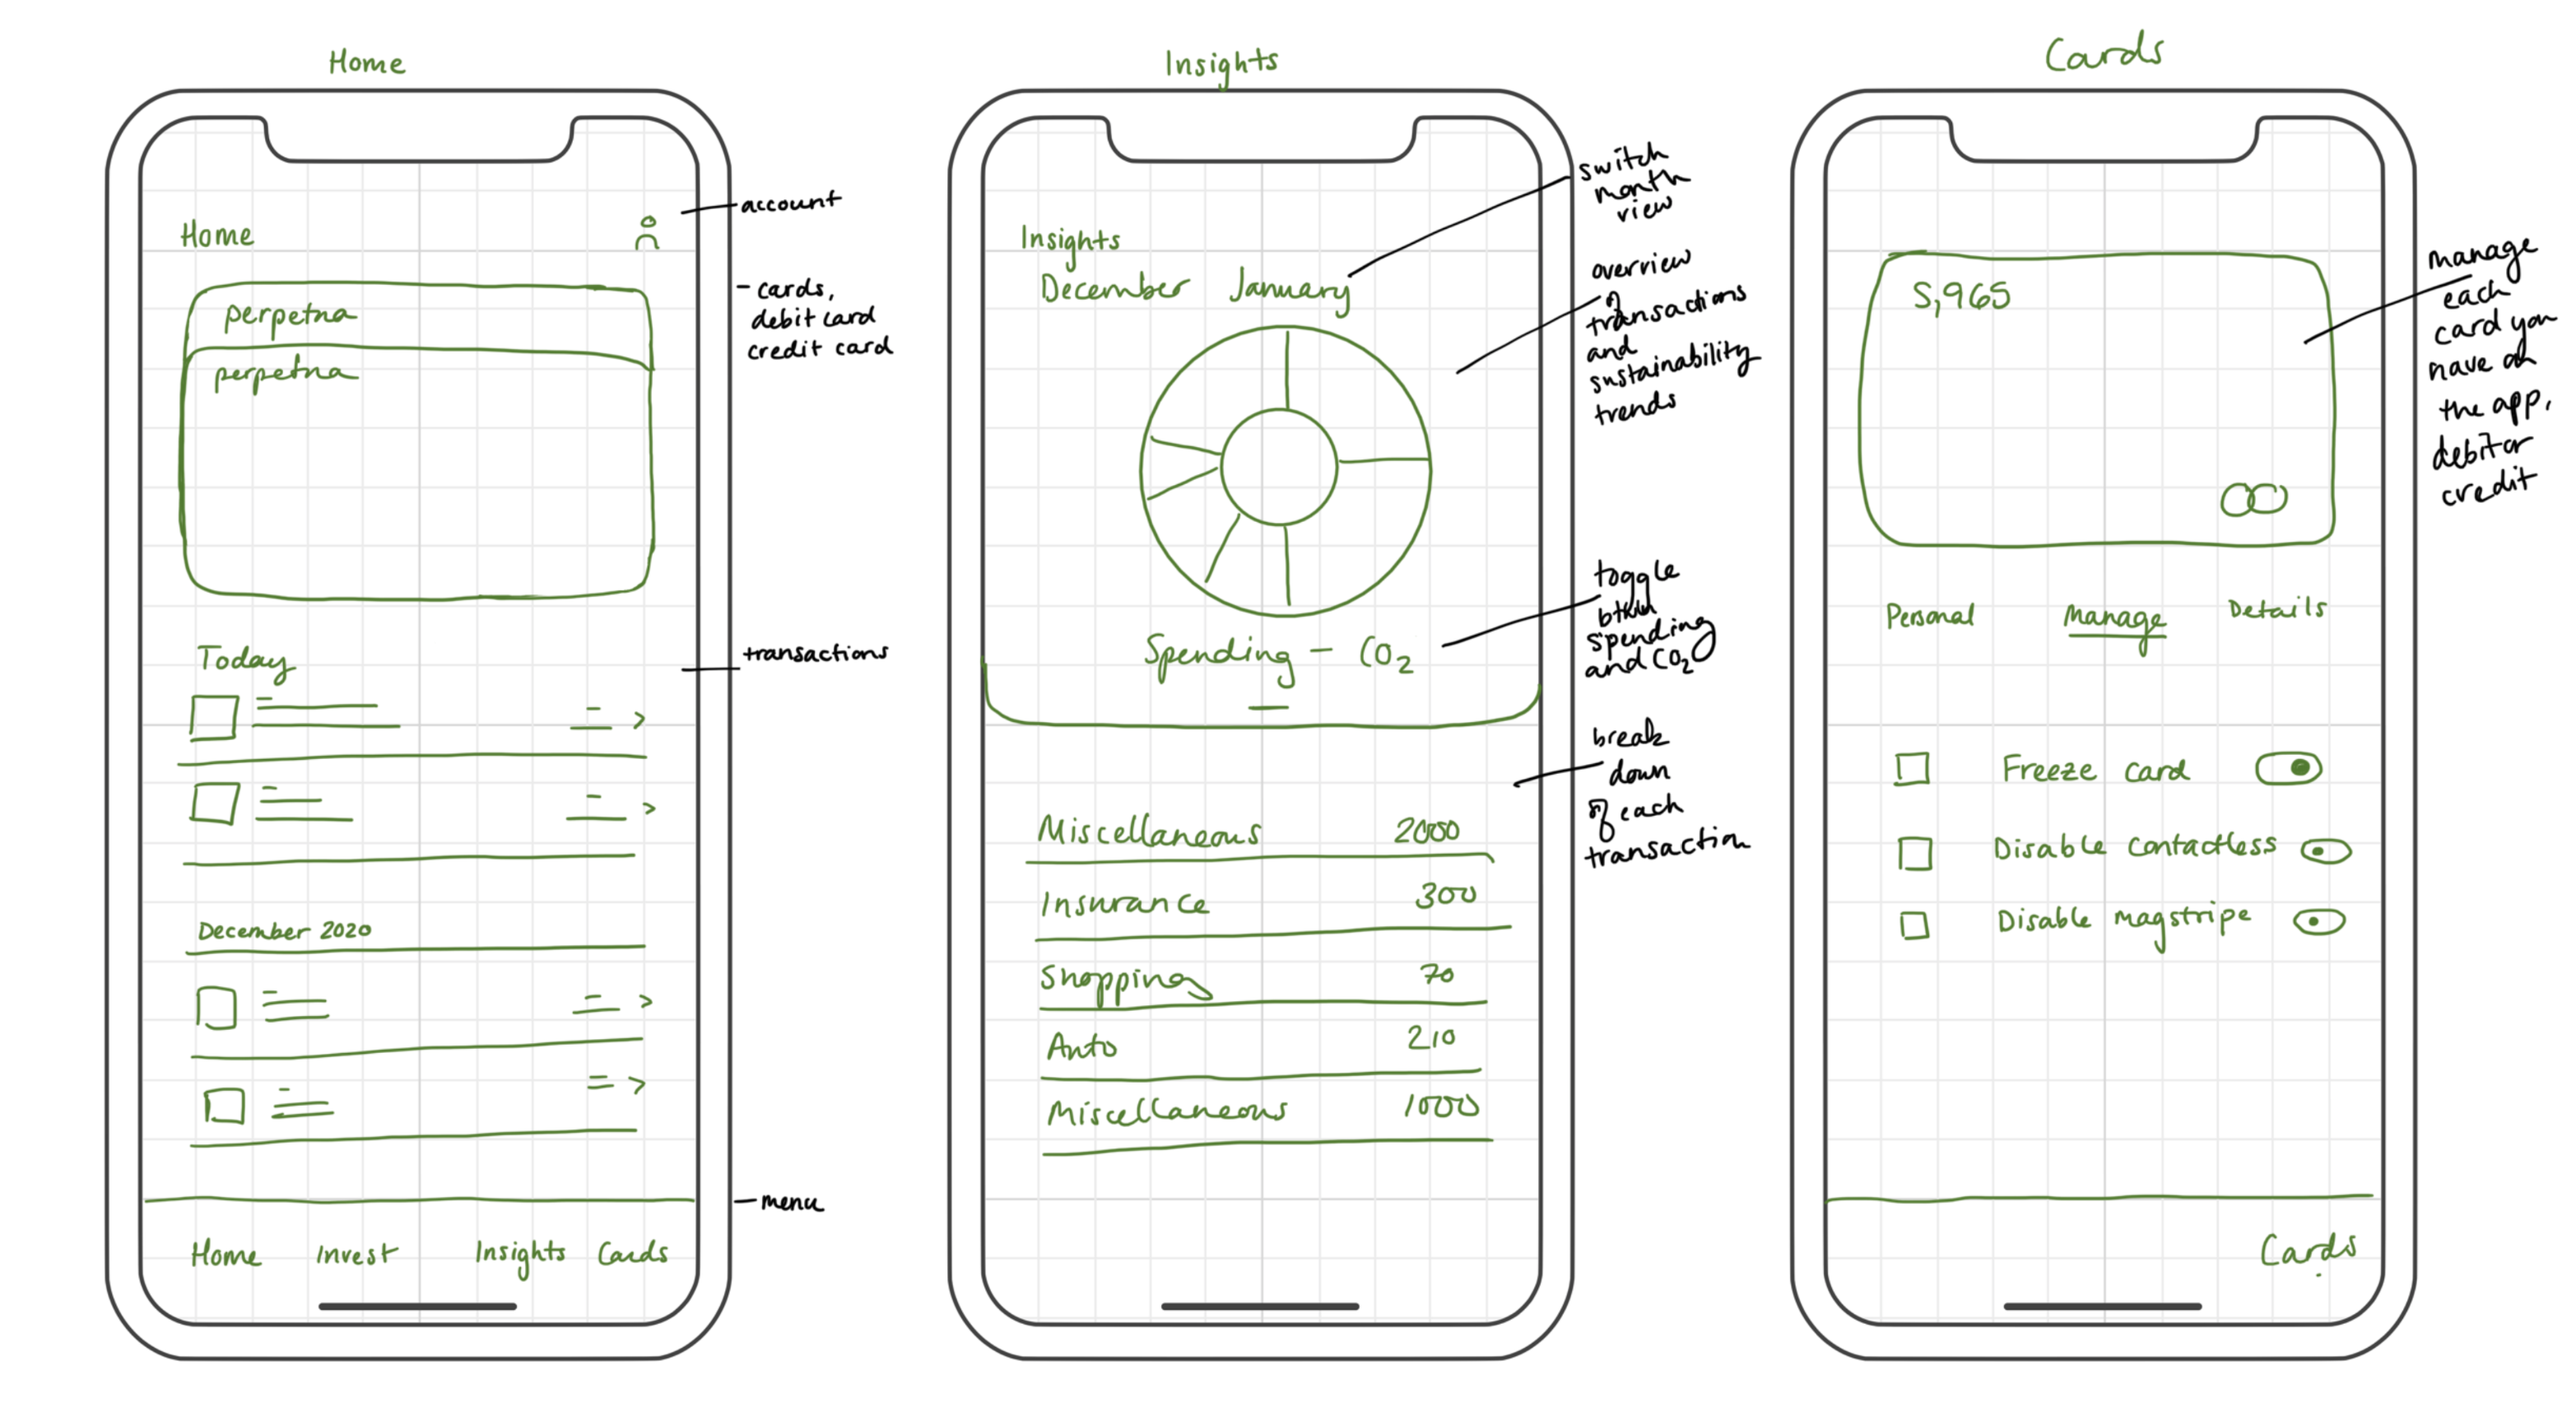 Home
Home
account
perpetua
perpetua
cards,
debit card
credit card
Today
transactions
December 2020
menu
Home Invest Insights Cards
Insights
Insights
December January
switch
month
view
overview
of
transactions
and
sustainability
trends
Spending - CO2
toggle
btwn
spending
and CO2
break
down
of each
transaction
Miscellaneous 2000
Insurance 300
Shopping 70
Auto 210
Miscellaneous 1000
Cards
5,965
manage
each
card you
have on
the app,
debit or
credit
Personal Manage Details
Freeze card
Disable contactless
Disable magstripe
Cards